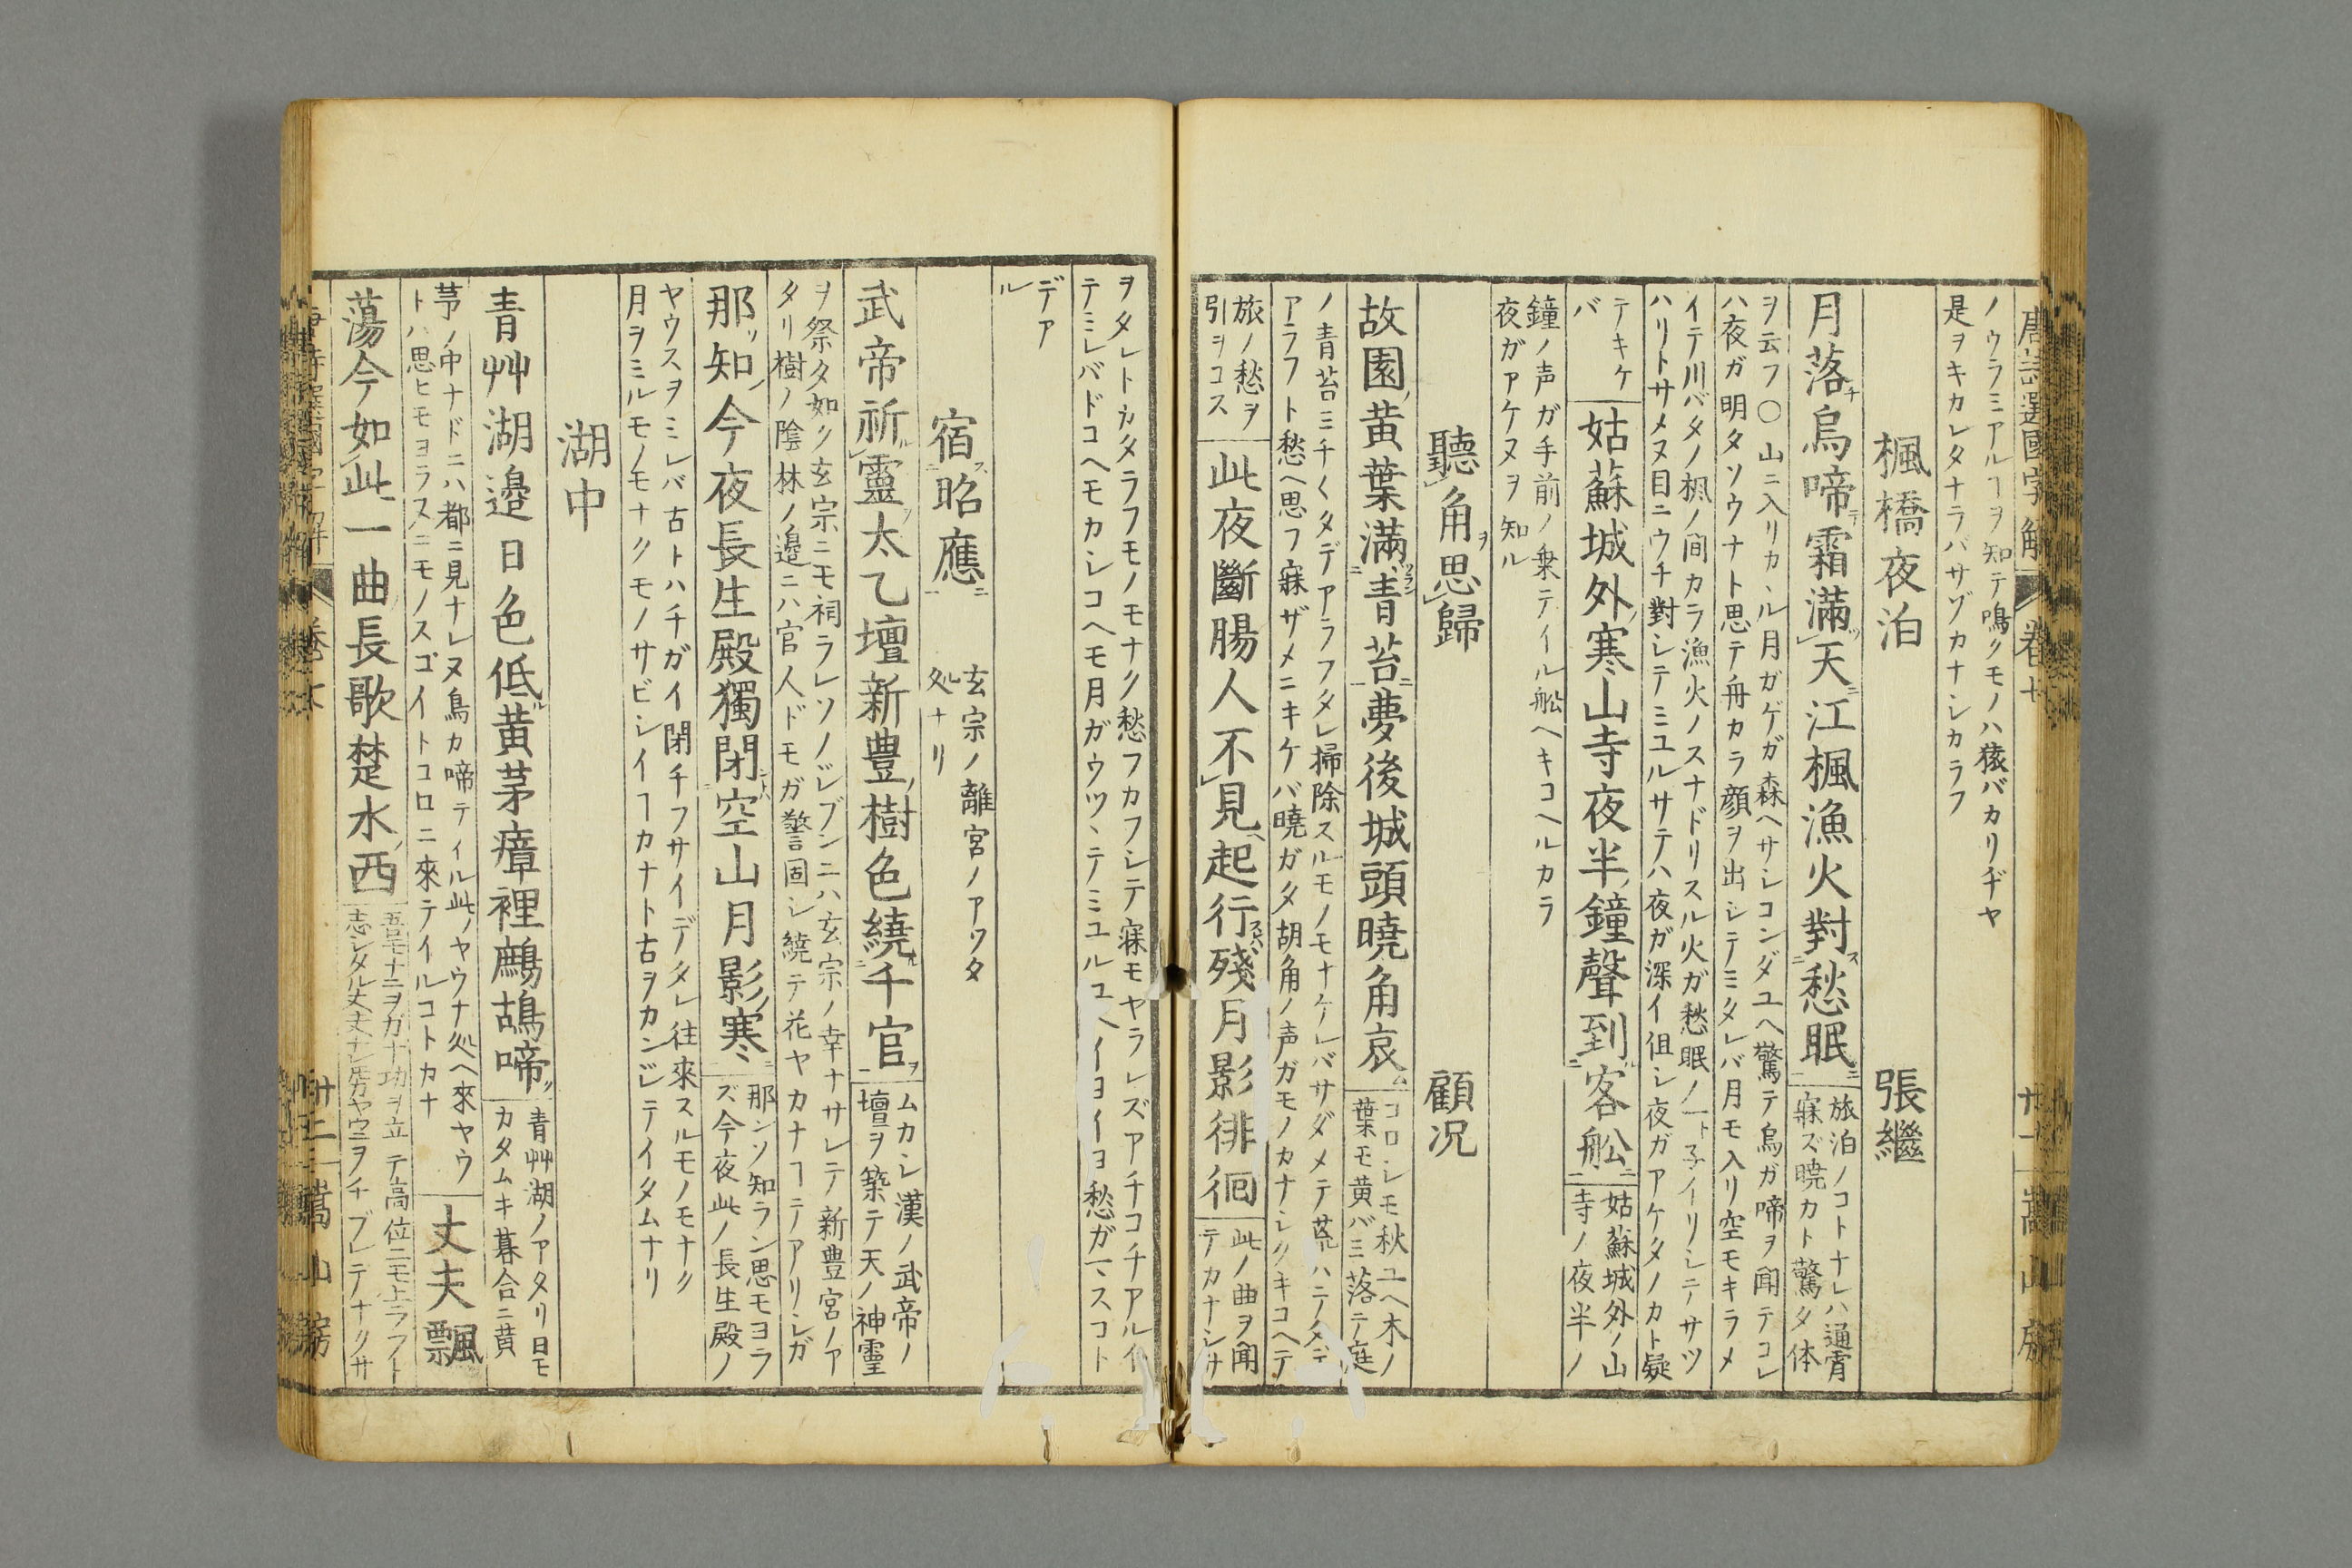 唐詩選國字解 卷七 卅一 嵩山房
ノウラミアルヿヲ知テ鳴クモノハ猿バカリヂヤ
是ヲキカレタナラバサゾカナシカラフ
楓橋夜泊 張繼
月落烏啼霜滿天江楓漁火對愁眠
旅泊ノコトナレハ通霄
寐ズ曉カト驚タ体
ヲ云フ○山ニ入リカヽル月ガゲガ森ヘサシコンダユヘ驚テ烏ガ啼ヲ聞テコレ
ハ夜ガ明タソウナト思テ舟カラ顔ヲ出シテミタレバ月モ入リ空モキラメ
イテ川バタノ楓ノ間カラ漁火ノスナドリスル火ガ愁眠ノ
ハリトサメヌ目ニウチ對シテミユルサテハ夜ガ深イ但シ夜ガアケタノカト疑
テキケ
バ
姑蘇城外寒山寺夜半鐘聲到客舩
姑蘇城外ノ山
寺ノ夜半ノ
鐘ノ声ガ手前ノ乗テイル舩ヘキコヘルカラ
夜ガアケヌヲ知ル
聽角思歸 顧况
故園黄葉滿青苔夢後城頭曉角哀
コロシモ秋ユヘ木ノ
葉モ黄バミ落テ庭
ノ青苔ミチ〱タデアラフタレ掃除スルモノモナケレバサダメテ荒ハテタデ
アラフト愁ヘ思フ寐ザメニキケバ曉ガタ胡角ノ声ガモノカナシクキコヘテ
旅ノ愁ヲ
引ヲコス
此夜斷腸人不見起行殘月影徘徊
此ノ曲ヲ聞
テカナシサ
ヲタレトカタラフモノモナク愁フカフシテ寐モヤラレズアチコチアルイ
テミレバドコヘモカシコヘモ月ガウツヽテミユルユヘイヨイヨ愁ガマスコト
デア
ル
宿昭應
玄宗ノ離宮ノアツタ
処ナリ
武帝祈靈太乙壇新豊樹色繞千官
ムカシ漢ノ武帝ノ
壇ヲ築テ天ノ神靈
ヲ祭タ如ク玄宗ニモ祠ラレソノジブンニハ玄宗ノ幸ナサレテ新豊宮ノア
タリ樹ノ陰林ノ邉ニハ官人ドモガ警固シ繞テ花ヤカナヿテアリシガ
那知今夜長生殿獨閉空山月影寒
那ンソ知ラン思モヨラ
ズ今夜此ノ長生殿ノ
ヤウスヲミレバ古トハチガイ閉チフサイデタレ往來スルモノモナク
月ヲミルモノモナクモノサビシイヿカナト古ヲカンジテイタムナリ
湖中
青艸湖邉日色低黄茅瘴裡鷓鴣啼
青艸湖ノアタリ日モ
カタムキ暮合ニ黄
茅ノ中ナドニハ都ニ見ナレヌ鳥カ啼テイル此ノヤウナ処ヘ來ヤウ
トハ思ヒモヨラスニモノスゴイトコロニ來テイルコトカナ
丈夫飄
蕩今如此一曲長歌楚水西
吾モナニヲガナ功ヲ立テ高位ニモ上ラフト
志シタル丈夫ナレ
卅二 嵩山房